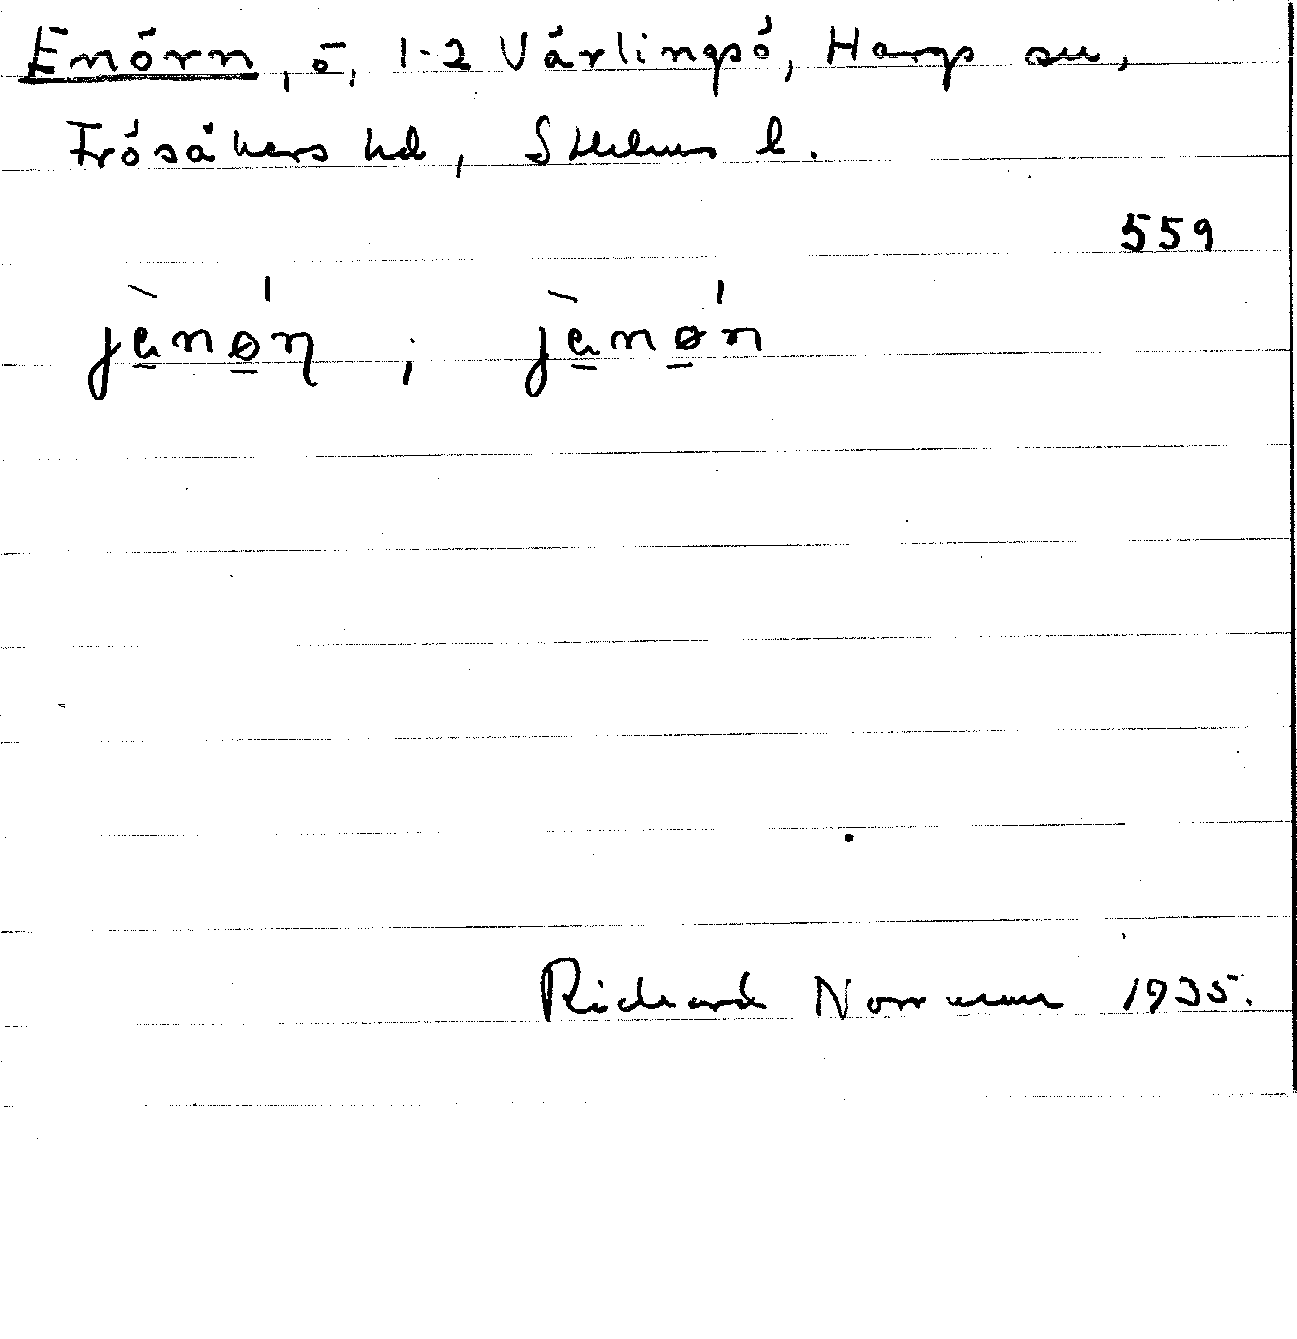 Enörn, ö, 1-2 Värlingsö, Hargs sn,
Frösåkers hd, Sthlms l.
559
jènø̱ɳ ; jènø̱n
Richard Norrman 1935.